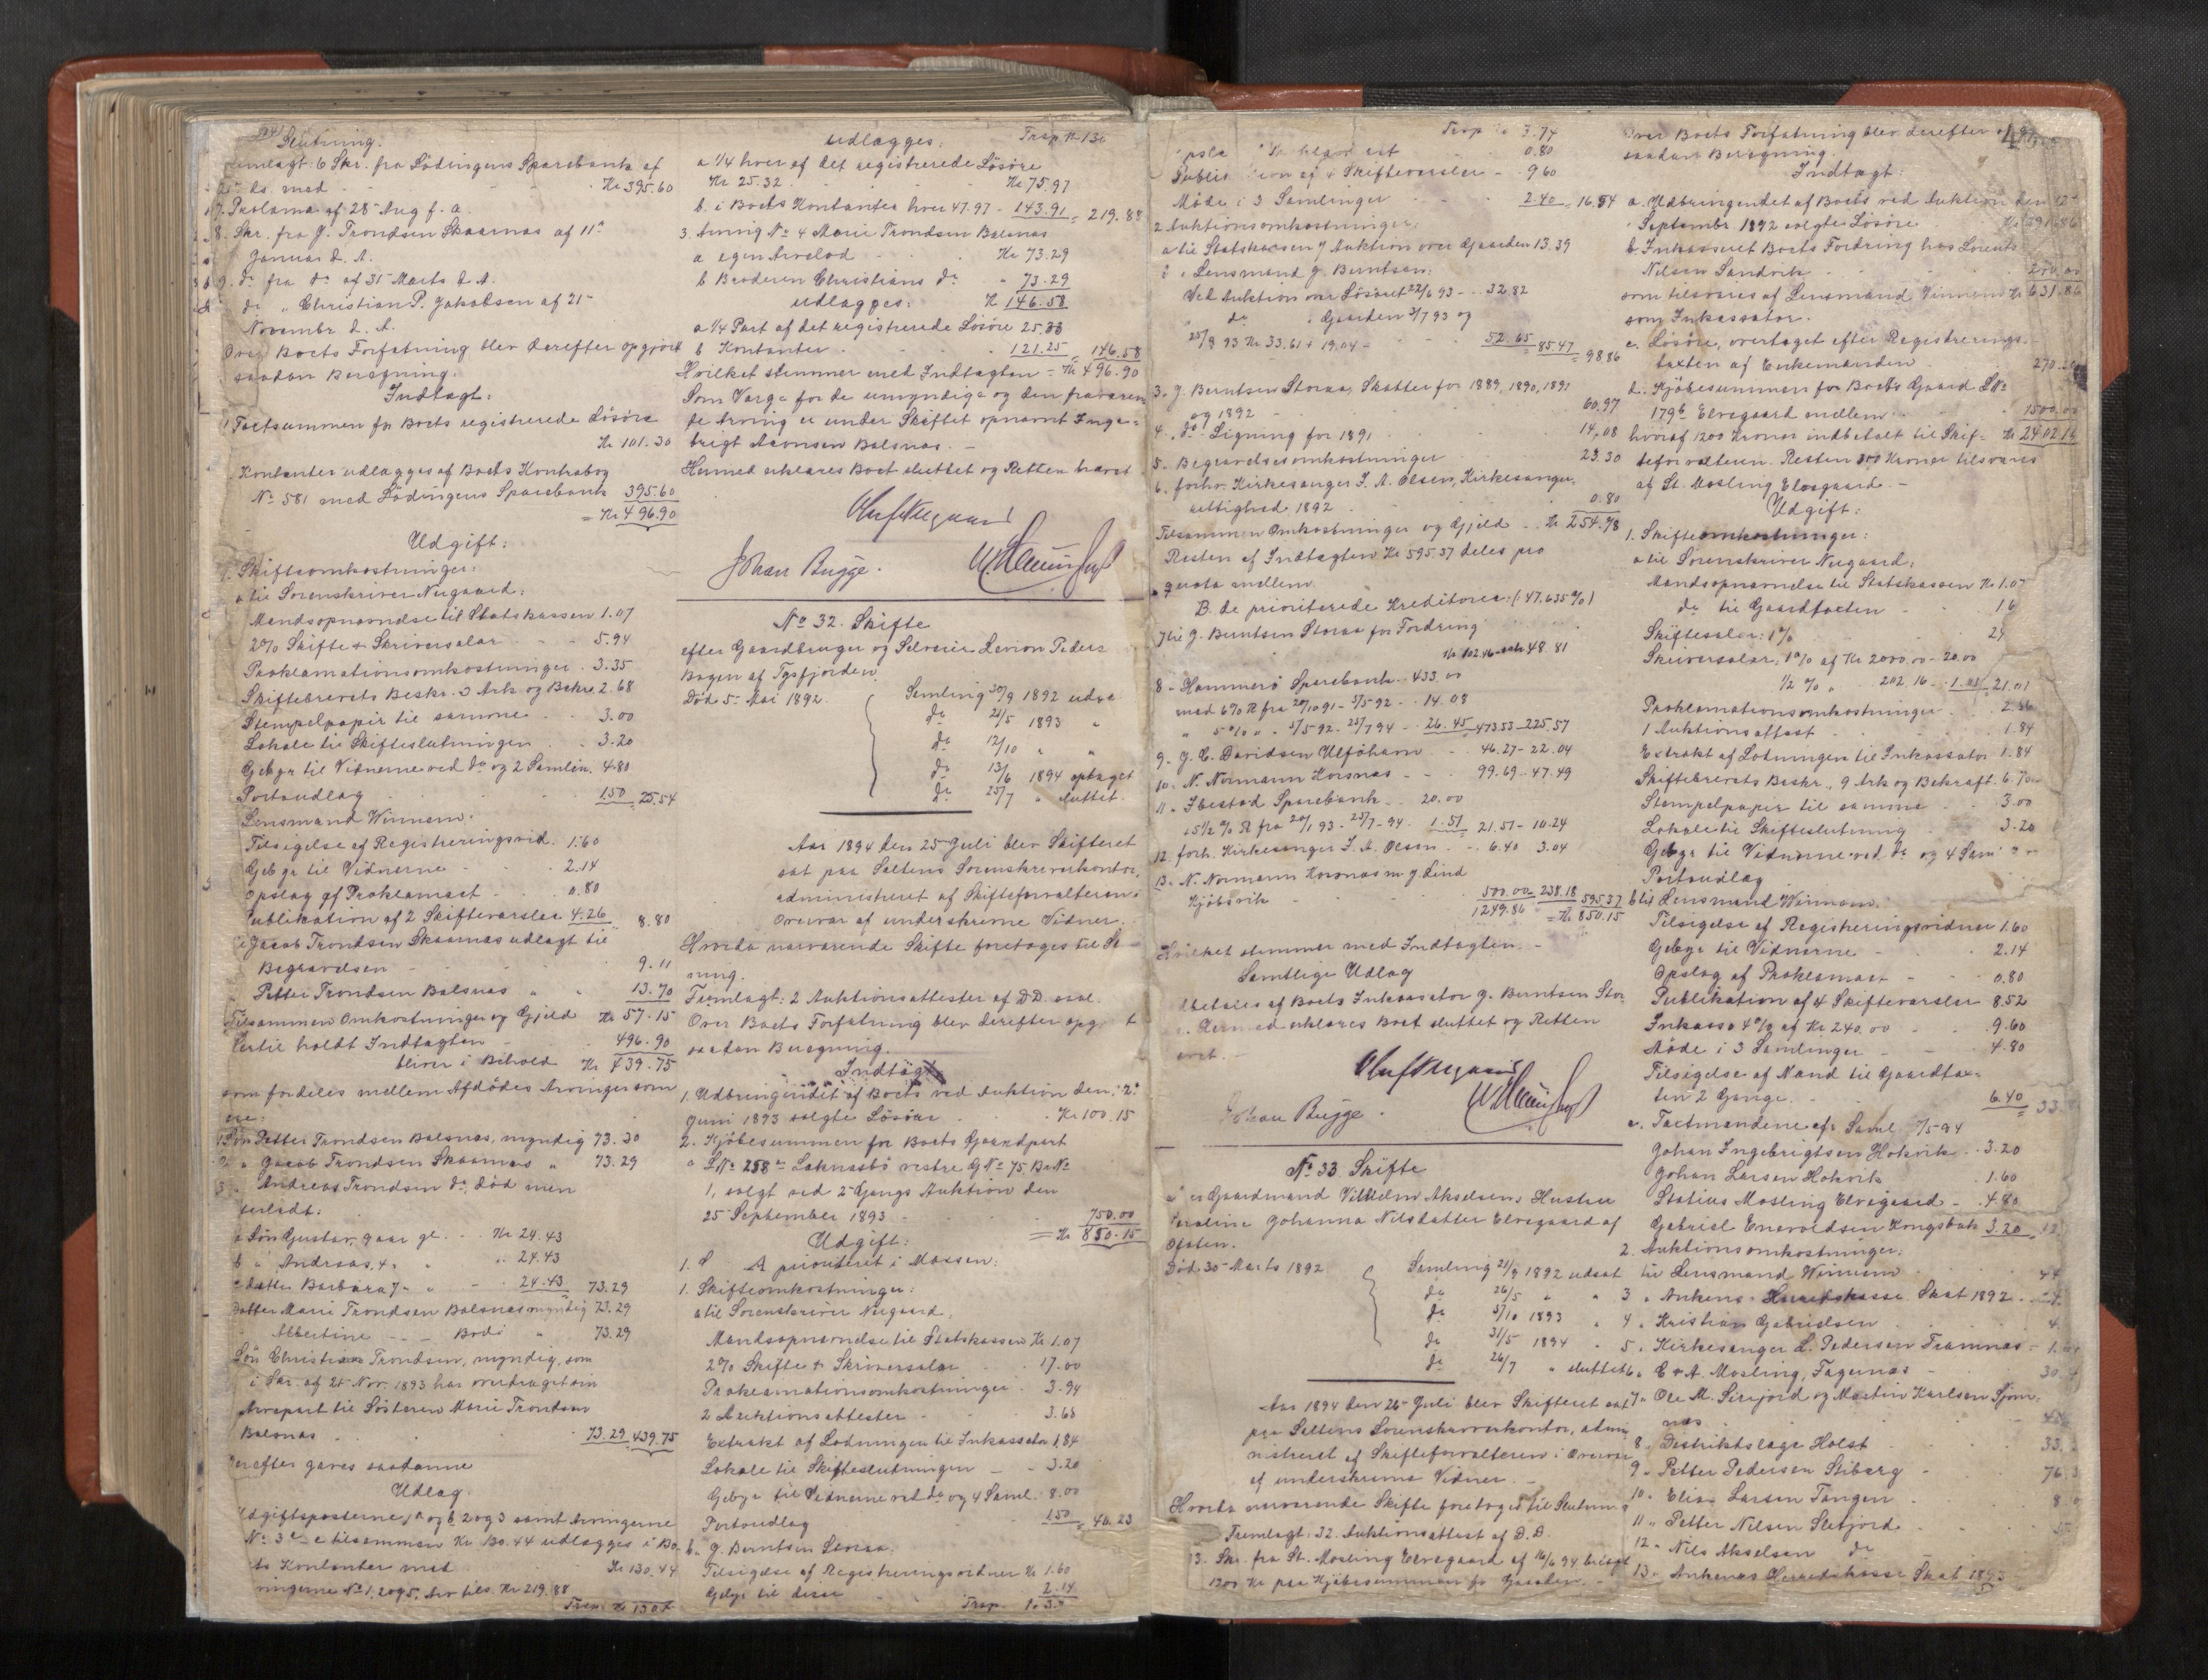 Slutning.
Fremlagt: 6 Skr. fra Lödingens Sparebank af
ds. med Kr 395.60
7. Proklama af 28 Aug f. a.
8. Skr. fra J. Trondsen Skaarnæs af 11te
Januar d. A.
9. do fra do af 31 Marts d. A.
do " Christian P. Jakobsen af 21
Novembr d. A.
Over Boets Forfatning blev derefter opgjort
saadan Beregning.
Indtægt:
1 Taxtsummen for Boets registrerede Lösöre
Kr 101.30
Kontanter udlægges af Boets Kontrabog
No 581 med Lödingens Sparebank 395.60
= Kr 496.90
Udgift:
1. Skifteomkostninger:
a til Sorenskriver Neergaard:
Mandsopnævnelse til Statskassen 1.07
2% Skifte & Skriversalær 5.94
Proklamationsomkostninger 3.35
Skiftebrevets Beskr. 3 Ark og Bekr. 2.68
Stempelpapir til samme 3.00
Lokale til Skifteslutningen 3.20
Gebyr til Vidnerne ved do og 2 Samlin. 4.80
Portoudlæg 1.50 25.54
Lensmand Winnem:
Tilsigelse af Registreringsvid. 1.60
Gebyr til Vidnerne 2.14
Opslag af Proklamaet 0.80
Publikation af 2 Skiftevarsler 4.26 8.80
Jacob Trondsen Skaarnæs udlagt til
Begravelsen 9.11
Petter Trondsen Balsnæs " " 13.70
Tilsammen Omkostninger og Gjeld Kr 57.15
Hertil holdt Indtægten 496.90
bliver i Behold Kr 439.75
som fordeles mellem Afdödes Arvinger som
er:
1 Sön Petter Trondsen Balsnæs, myndig 73.30
2 " Jacob Trondsen Skaarnæs " 73.29
3 " Andreas Trondsen do, död men
efterladt:
a Sön Gustav, gaar gl. Kr 24.43
b " Andreas, 4 " 24.43
c Datter Barbara 7 " 24.43 73.29
Datter Marie Trondsen Balsnæs myndig 73.29
Albertine Bodö " 73.29
Sön Christian Trondsen, myndig, som
i Skr. af 21 Nov. 1893 har overdraget sin
Arvepart til Sösteren Marie Trondsen
Balsnæs 73.29 439.75
Derefter gaves saadanne
Udlæg.
Udgiftsposterne 1 a og b 2 og 3 samt Arvingerne
No 3 a-c tilsammen Kr 130.44 udlægges i Bo-
ets Kontanter med Kr 130.44
Arvingerne No 1, 2 og 5, Arv tils. Kr 219.88
Trsp. Kr 130.
udlægges: Trsp. Kr 130
a 1/4 hver af det registrerede Lösöre
Kr 25.32 Kr 75.97
b. i Boets Kontanter hver 47.97 143.91 = 219.88
3. Arving No 4 Marie Trondsen Balsnæs
a egen Arvelod Kr 73.29
b Broderen Christians do " 73.29
udlægges: Kr 146.58
a 1/4 Part af det registrerede Lösöre 25.33
b Kontanter 121.25 = 146.58
Hvilket stemmer med Indtægten = Kr 496.90
Som Værge for de umyndige og den fraværen
de Arving er under Skiftet opnævnt Inge-
brigt Aronsen Balsnæs.
Hermed erklæres Boet sluttet og Retten hævet
Johan Bugge.
No 32. Skifte
efter Gaardbruger og Selveier Levion Peders
Bogen af Tysfjorden
Död 5 Mai 1892.
Samling 30/9 1892 udsat
do 26/5 1893 "
do 12/10 " "
do 13/6 1894 optaget
do 25/7 " sluttet.
Aar 1894 den 25 Juli blev Skifteret
sat paa Saltens Sorenskriverkontor,
administreret af Skifteforvalteren i
Overvær af underskrevne Vidner.
Hvorda nærværende Skifte foretoges til Sl
ning.
Fremlagt: 2 Auktionsattester af D.D.
Over Boets Forfatning blev derefter opg
saadan Beregning.
Indtægt
1. Udbringendet af Boets ved Auktion den 2
Juni 1893 solgte Lösöre Kr 100.15
2. Kjöbesummen for Boets Gaardpart
LNo 258 a Laknesbö vestre GNo 75 BrNo
1, solgt ved 2 Gangs Auktion den
25 September 1893 750.00
= Kr 850.15
Udgift:
A prioriteret i Massen:
1. Skifteomkostninger:
a til Sorenskriver Neergaard.
Mandsopnævnelse til Statskassen Kr 1.07
2% Skifte & Skriversalær 17.00
Proklamationsomkostninger 3.94
2 Auktionsattester 3.68
Extrakt af Lodningen til Inkassator 1.84
Lokale til Skifteslutningen 3.20
Gebyr til Vidnerne ved do og 4 Saml. 8.00
Portoudlæg 1.50 = 40.23
b. J. Berntsen Storaa.
Tilsigelse af Registreringsvidner Kr 1.60
Gebyr til disse 2.14
Trsp. Kr 3.7
Trsp Kr 3.74
0.80
Publikation af 4 Skiftevarsler 9.60
Möde i 3 Samlinger 2.40 = 16.54
2 Auktionsomkostninger:
a til Statskassen f Auktion over Gaarden 13.39
Lensmand J. Berntsen:
Ved Auktion over Lösöret 22/6 93 32.82
do " Gaarden 3/7 93 og
25/9 93 Kr 33.61 + 19.04 52.65 = 85.47
= 98.86
3. J. Berntsen Storaa, Skatter for 1889, 1890, 1891
og 1892 60.97
4. do Ligning for 1891 14.08
5. Begravelsesomkostninger 23.30
6. forhv. Kirkesanger J. A. Olsen, Kirkesanger-
rettighed 1892 0.80
Tilsammen Omkostninger og Gjeld Kr 254.78
Resten af Indtægten Kr 595.37 deles pro
quota mellem
B. de prioriterede Kreditorer: (47.635%)
7 til J. Berntsen Storaa for Fordring
Kr 102.46 48.81
8 " Hammerö Sparebank 433.00
med 6% R fra 24/10 91 - 5/5 92 14.08
" 5% " " 5/5 92 - 25/7 94 26.45 473.53 225.57
9. J. C. Davidsen Ulföhavn 46.27 - 22.04
10. N. Normann Korsnæs 99.69 - 47.49
11 " Ibestad Sparebank 20.00
5 1/2% R fra 20/1 93 - 25/7 - 94 1.51 21.51 - 10.24
12. forh. Kirkesanger J. A. Olsen 6.40 3.04
13. N. Normann Korsnæs m J. Lind
Kjöbsvik 500.00 238.18 595.37
1249.86 = Kr 850.15
Hvilket stemmer med Indtægten.
Samtlige Udlæg
udbetales af Boets Inkassator J. Berntsen Stor
Hermed erklæres Boet sluttet og Retten
hævet.
Johan Bugge.
No 33 Skifte
efter Gaardmand Vilhelm Akselsens Hustru
Johanna Nilsdatter Elvegaard af
Ofoten.
Död 30 Marts 1892
Samling 21/9 1892 udsat
do 26/5 " "
do 5/10 1893 "
do 31/5 1894 "
do 26/7 " sluttet
Aar 1894 den 26 Juli blev Skifteret sat
paa Saltens Sorenskriverkontor, admi
nistreret af Skifteforvalteren i Overvær
af underskrevne Vidner.
Hvorda nærværende Skifte foretoges til Slutning
Fremlagt: 12. Auktionsattest af D.D.
13. Skr. fra St. Mosling Elvegaard af 16/6 94
1200 Kr paa Kjöbesummen for Gaarden.
Over Boets Forfatning blev derefter
saadan Beregning.
Indtægt:
a. Udbringendet af Boets ved Auktion den 12
Septembr 1892 solgte Lösöre Kr 391.86
b. Inkasseret Boets Fordring hos Lorents
Nilsen Sandvik 240.00
som tilsvares af Lensmand Winnem Kr 631.86
som Inkassator.
c. Lösöre, overtaget efter Registrerings-
taxten af Enkemanden 270.
d. Kjöbesummen for Boets Gaard LNo
179 b Elvegaard mellem 1500.00
hvoraf 1200 Kroner indbetalt til Skif- Kr 2402.16
teforvalteren. Resten 300 Kroner tilsvares
af St. Mosling Elvegaard.
Udgift:
1. Skifteomkostninger:
a til Sorenskriver Neergaard:
Mandsopnævnelse til Statskassen Kr 1.07
do til Gaardtaxten 16
Skiftesalær: 1% 24
Skriversalær, 1% af Kr 2000.00 - 20.00
1/2% " 202.16 1.01 = 21.01
Proklamationsomkostninger 2.36
1 Auktionsattest 1.84
Extrakt af Lodningen til Inkassator 1.84
Skiftebrevets Beskr., 9 Ark og Bekræft. 6.70
Stempelpapir til samme 3.00
Lokale til Skifteslutning 3.20
Gebyr til Vidnerne ved do og 4 Sam
Portoudlæg
b til Lensmand Winnem.
Tilsigelse af Registreringsvidner 1.60
Gebyr til Vidnerne 2.14
Opslag af Proklamaet 0.80
Publikation af 4 Skiftevarsler 8.52
Inkasso 4% af Kr 240.00 9.60
Möde i 3 Samlinger 4.80
Tilsigelse af Mænd til Gaardtax-
ten 2 Gange. 6.40 = 33.
c. Taxtmændene efter Saml 7/5 94
Johan Ingebrigtsen Hokvik 3.20
Johan Larsen Hokvik 1.60
Statius Mosling Elvegaard 4.80
Gabriel Enevoldsen Kongsbak 3.20 12.
2. Auktionsomkostninger:
til Lensmand Winnem 44
3 " Ankenes Herredskasse Skat 1892
4 " Kristian Gabrielsen 4.
5 " Kirkesanger L. Pedersen Framnæs 1.
6 " C & A. Mosling, Fagernæs 30
7 " Ole M. Sirifjord og Martin Karlsen Sjom-
næs
8 " Distriktslæge Holst 33.
9 " Petter Pedersen Stiberg 76
10 " Elias Larsen Tangen 8
11 " Petter Nilsen Sletjord
12 " Nils Akselsen do
13 " Ankenes Herredskasse Skat 1893